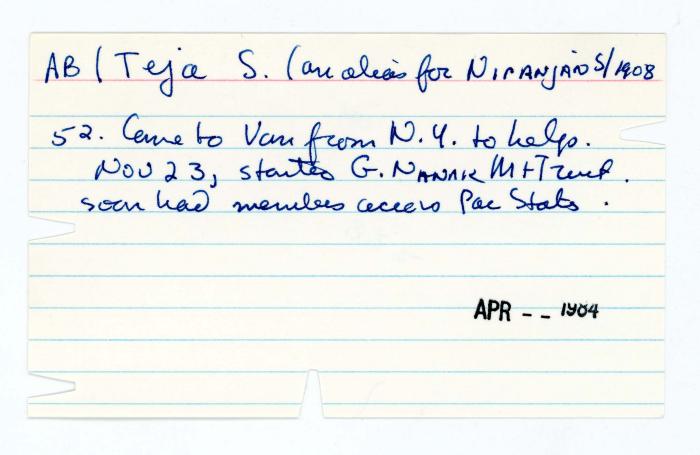 AB / Teja S. (an alias for Niranjan S/1908
52. Came to Van from N.Y. to help.
Nov 23, started G. Nanak M+Trust.
soon had members across Pac States.
APR -- 1984